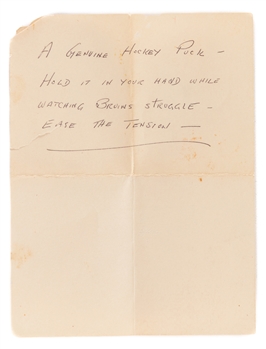 A GENUINE HOCKEY PUCK –
HOLD IT IN YOUR HAND WHILE
WATCHING BRUINS STRUGGLE –
EASE THE TENSION —